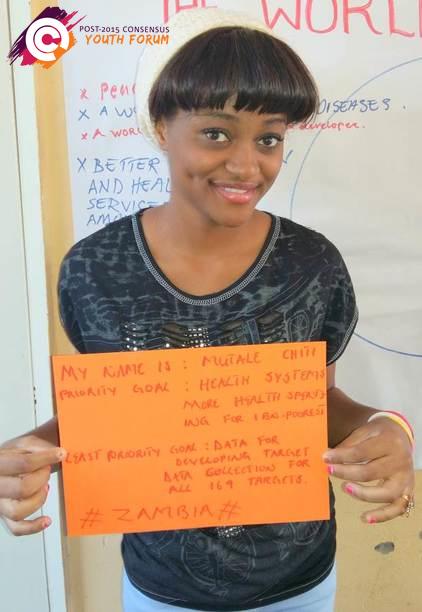 POST-2015 CONSENSUS
YOUTH FORUM
THE WORL
DISEASES.
X A WORL developer.
X BETTER
AND HEAL
SERVICE
MY NAME IS : MUTALE CHITI
PRIORITY GOAL : HEALTH SYSTEMS
MORE HEALTH SPEND
ING FOR 1 BN-POOREST
LEAST PRIORITY GOAL : DATA FOR
DEVELOPING TARGET
DATA COLLECTION FOR
ALL 169 TARGETS.
# ZAMBIA #